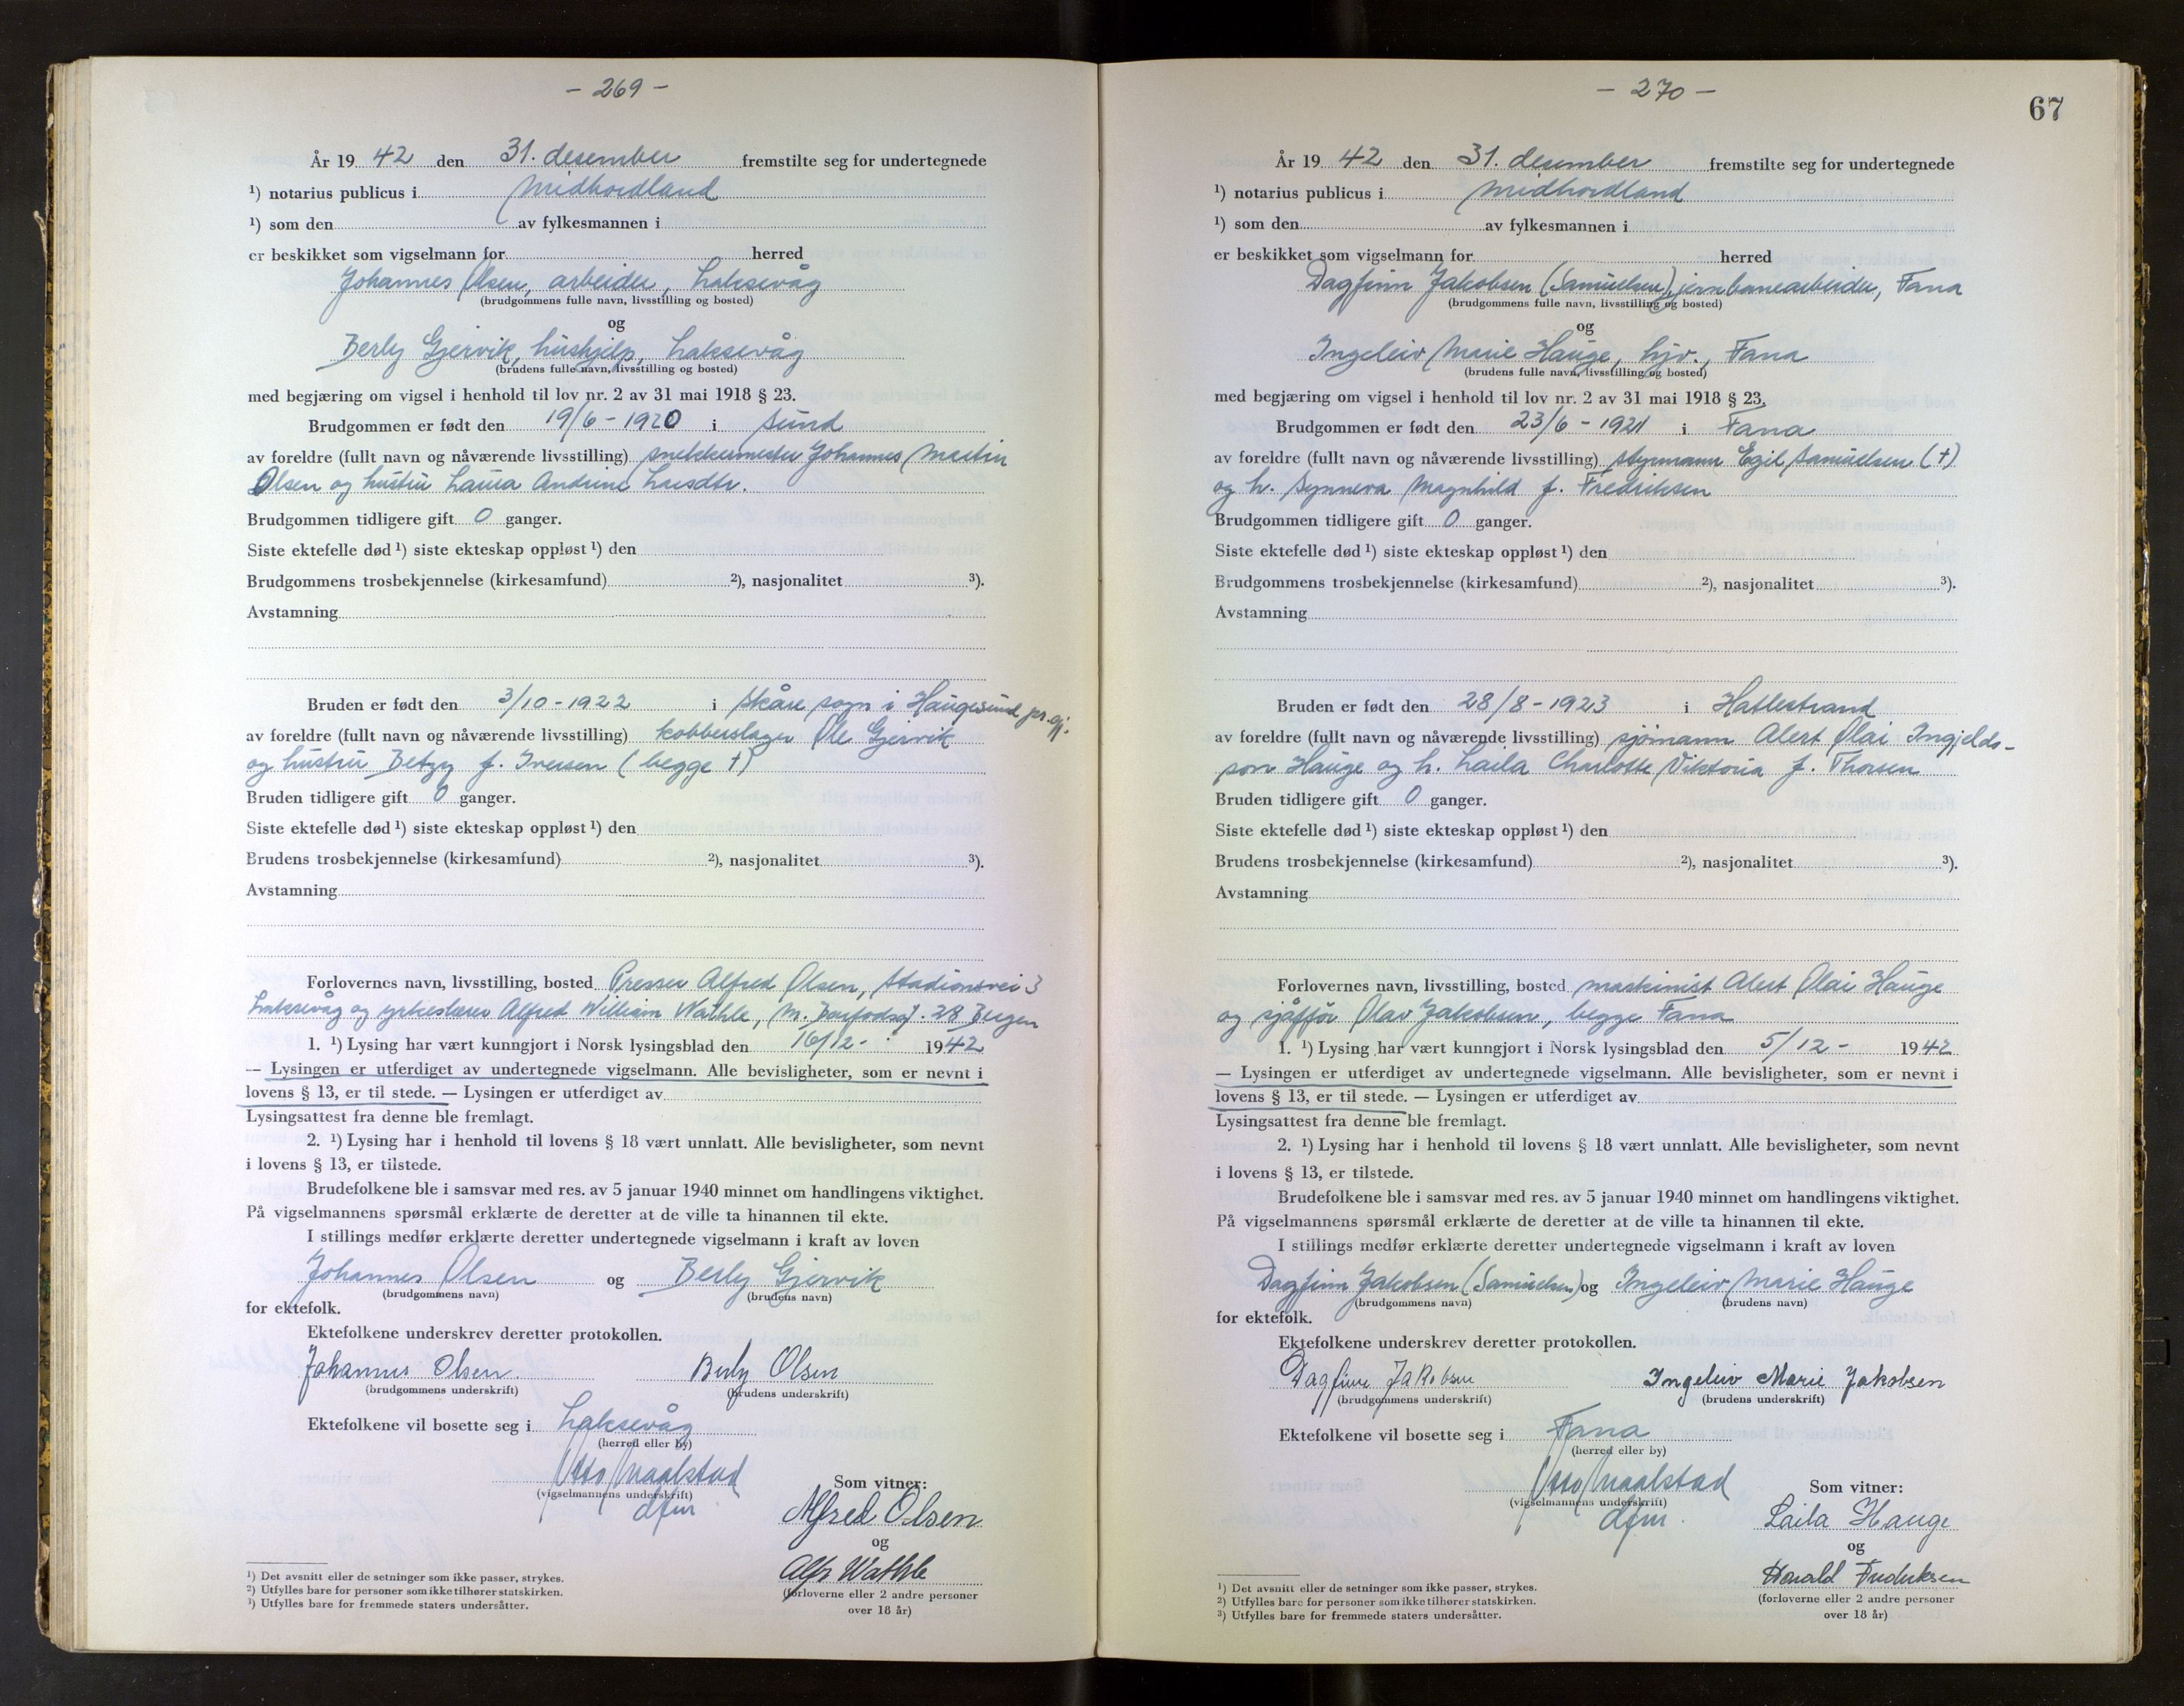 – 269 –
År 19 42 den 31. desember fremstilte seg for undertegnede
¹) notarius publicus i Midhordland
¹) som den av fylkesmannen i
er beskikket som vigselmann for herred
Johannes Olsen, arbeider, Laksevåg
(brudgommens fulle navn, livsstilling og bosted)
og
Berly Gjervik, hushjelp, Laksevåg
(brudens fulle navn, livsstilling og bosted)
med begjæring om vigsel i henhold til lov nr. 2 av 31 mai 1918 § 23.
Brudgommen er født den 19/6 - 1920 i Sund
av foreldre (fullt navn og nåværende livsstilling) snekkermester Johannes Martin
Olsen og hustru Laura Andrine Larsdtr.
Brudgommen tidligere gift 0 ganger.
Siste ektefelle død ¹) siste ekteskap oppløst ¹) den
Brudgommens trosbekjennelse (kirkesamfund) ²), nasjonalitet ³).
Avstamning
Bruden er født den 3/10 - 1922 i Skåre sogn i Haugesund pr.gj.
av foreldre (fullt navn og nåværende livsstilling) kobberslager Ole Gjervik
og hustru Betzy f. Iversen (begge †)
Bruden tidligere gift 0 ganger.
Siste ektefelle død ¹) siste ekteskap oppløst ¹) den
Brudens trosbekjennelse (kirkesamfund) ²), nasjonalitet ³).
Avstamning
Forlovernes navn, livsstilling, bosted Presser Alfred Olsen, Stadionsvei 3
Laksevåg og yrkeslærer Alfred William Wathle, M. 28 Bergen
1. ¹) Lysing har vært kunngjort i Norsk lysingsblad den 16/12- 1942
— Lysingen er utferdiget av undertegnede vigselmann. Alle bevisligheter, som er nevnt i
lovens § 13, er til stede. — Lysingen er utferdiget av
Lysingsattest fra denne ble fremlagt.
2. ¹) Lysing har i henhold til lovens § 18 vært unnlatt. Alle bevisligheter, som nevnt
i lovens § 13, er tilstede.
Brudefolkene ble i samsvar med res. av 5 januar 1940 minnet om handlingens viktighet.
På vigselmannens spørsmål erklærte de deretter at de ville ta hinannen til ekte.
I stillings medfør erklærte deretter undertegnede vigselmann i kraft av loven
Johannes Olsen og Berly Gjervik
(brudgommens navn) (brudens navn)
for ektefolk.
Ektefolkene underskrev deretter protokollen.
Johannes Olsen. Berly Olsen
(brudgommens underskrift) (brudens underskrift)
Ektefolkene vil bosette seg i Laksevåg
(herred eller by)
Otto Maalstad
(vigselmannens underskrift)
dfm
Som vitner:
Alfred Olsen
og
Alfr Wathle
(forloverne eller 2 andre personer
over 18 år)
¹) Det avsnitt eller de setninger som ikke passer, strykes.
²) Utfylles bare for personer som ikke tilhører statskirken.
³) Utfylles bare for fremmede staters undersåtter.
– 270 –
67
År 19 42 den 31. desember fremstilte seg for undertegnede
¹) notarius publicus i Midhordland
¹) som den av fylkesmannen i
er beskikket som vigselmann for herred
Dagfinn Jakobsen (Samuelsen), jernbanearbeider, Fana
(brudgommens fulle navn, livsstilling og bosted)
og
Ingeleiv Marie Hauge, hjv., Fana
(brudens fulle navn, livsstilling og bosted)
med begjæring om vigsel i henhold til lov nr. 2 av 31 mai 1918 § 23.
Brudgommen er født den 23/6 - 1921 i Fana
av foreldre (fullt navn og nåværende livsstilling) styrmann Egil Samuelsen (†)
og h. Synneva Magnhild f. Fredriksen
Brudgommen tidligere gift 0 ganger.
Siste ektefelle død ¹) siste ekteskap oppløst ¹) den
Brudgommens trosbekjennelse (kirkesamfund) ²), nasjonalitet ³).
Avstamning
Bruden er født den 28/8 - 1923 i Hatlestrand
av foreldre (fullt navn og nåværende livsstilling) sjömann Alert Olai Ingjelds-
son Hauge og h. Laila Charlotte Viktoria f. Thorsen
Bruden tidligere gift 0 ganger.
Siste ektefelle død ¹) siste ekteskap oppløst ¹) den
Brudens trosbekjennelse (kirkesamfund) ²), nasjonalitet ³).
Avstamning
Forlovernes navn, livsstilling, bosted maskinist Alert Olai Hauge
og sjåfför Olav Jakobsen, begge Fana
1. ¹) Lysing har vært kunngjort i Norsk lysingsblad den 5/12 - 1942
— Lysingen er utferdiget av undertegnede vigselmann. Alle bevisligheter, som er nevnt i
lovens § 13, er til stede. — Lysingen er utferdiget av
Lysingsattest fra denne ble fremlagt.
2. ¹) Lysing har i henhold til lovens § 18 vært unnlatt. Alle bevisligheter, som nevnt
i lovens § 13, er tilstede.
Brudefolkene ble i samsvar med res. av 5 januar 1940 minnet om handlingens viktighet.
På vigselmannens spørsmål erklærte de deretter at de ville ta hinannen til ekte.
I stillings medfør erklærte deretter undertegnede vigselmann i kraft av loven
Dagfinn Jakobsen (Samuelsen) og Ingeleiv Marie Hauge
(brudgommens navn) (brudens navn)
for ektefolk.
Ektefolkene underskrev deretter protokollen.
Dagfinn Jakobsen Ingeleiv Marie Jakobsen
(brudgommens underskrift) (brudens underskrift)
Ektefolkene vil bosette seg i Fana
(herred eller by)
Otto Maalstad
(vigselmannens underskrift)
dfm.
Som vitner:
Laila Hauge
og
Harald Fredriksen
(forloverne eller 2 andre personer
over 18 år)
¹) Det avsnitt eller de setninger som ikke passer, strykes.
²) Utfylles bare for personer som ikke tilhører statskirken.
³) Utfylles bare for fremmede staters undersåtter.